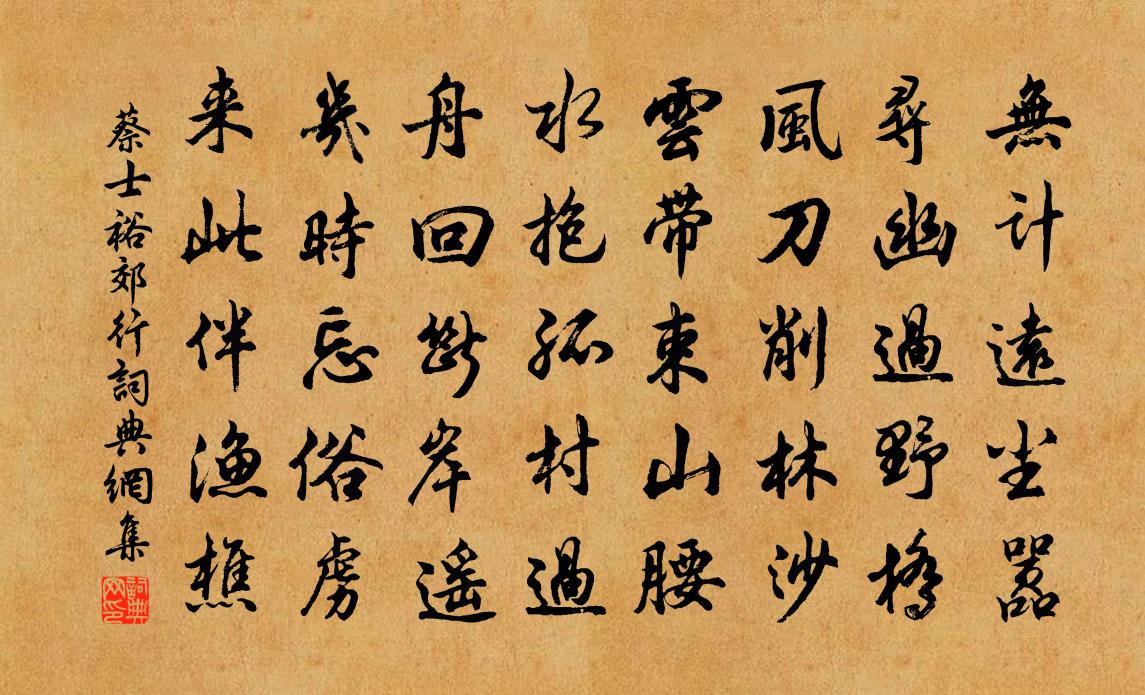 無计遠尘嚣
尋幽過野橋
風刀削林沙
雲带束山腰
水抱孤村過
舟回断岸遥
幾時忘俗虜
来此伴漁樵
蔡士裕郊行詞典網集
詞典网印